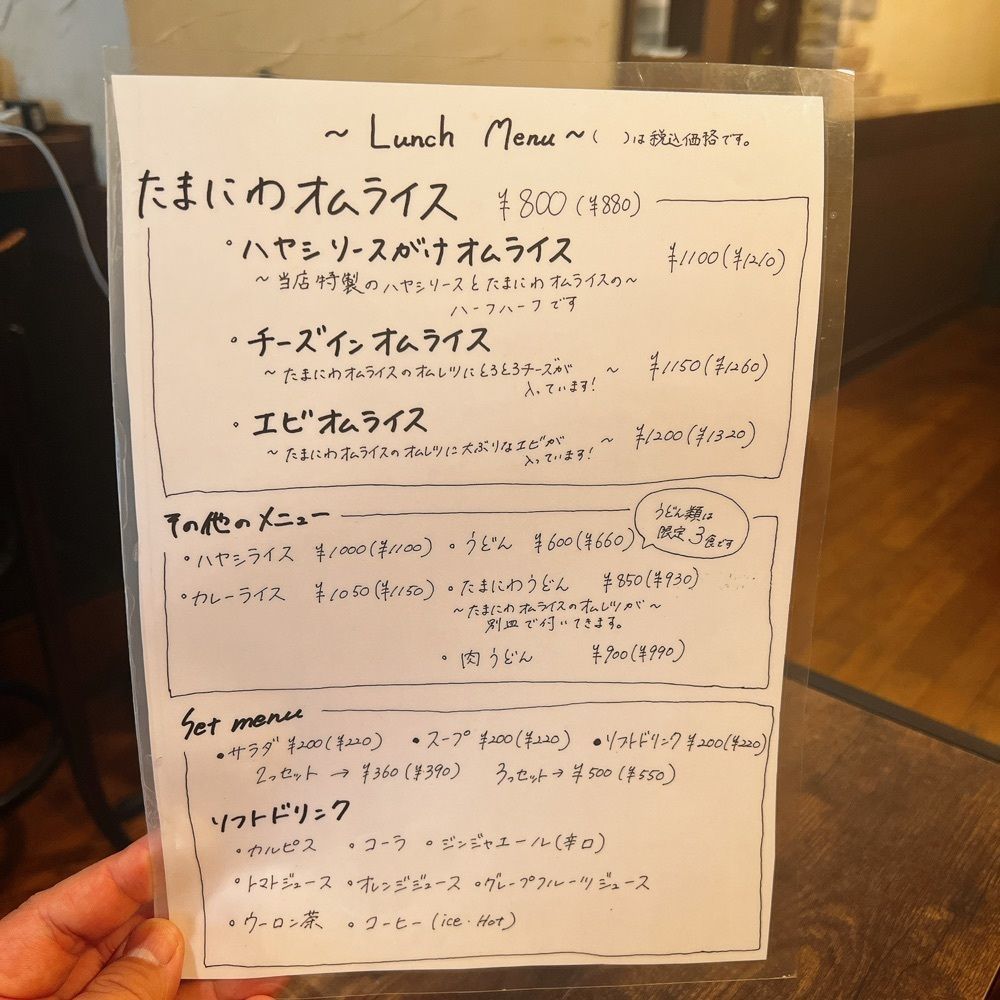 ~ Lunch Menu ~ ( )は税込価格です。
たまにわオムライス ¥800(¥880)
・ハヤシソースがけオムライス ¥1100(¥1210)
~当店特製のハヤシソースとたまにわオムライスの~
ハーフハーフです
・チーズインオムライス
~たまにわオムライスのオムレツにとろとろチーズが
入っています! ~ ¥1150(¥1260)
・エビオムライス
~たまにわオムライスのオムレツに大ぶりなエビが
入っています! ~ ¥1200(¥1320)
その他のメニュー
うどん類は
限定3食です
・ハヤシライス ¥1000(¥1100) ・うどん ¥600(¥660)
・カレーライス ¥1050(¥1150) ・たまにわうどん ¥850(¥930)
~たまにわオムライスのオムレツが~
別皿で付いてきます。
・肉うどん ¥900(¥990)
Set menu
・サラダ ¥200(¥220) ・スープ ¥200(¥220) ・ソフトドリンク ¥200(¥220)
2つセット → ¥360(¥390) 3つセット → ¥500(¥550)
ソフトドリンク
・カルピス ・コーラ ・ジンジャエール(辛口)
・トマトジュース ・オレンジジュース ・グレープフルーツジュース
・ウーロン茶 ・コーヒー(ice・Hot)